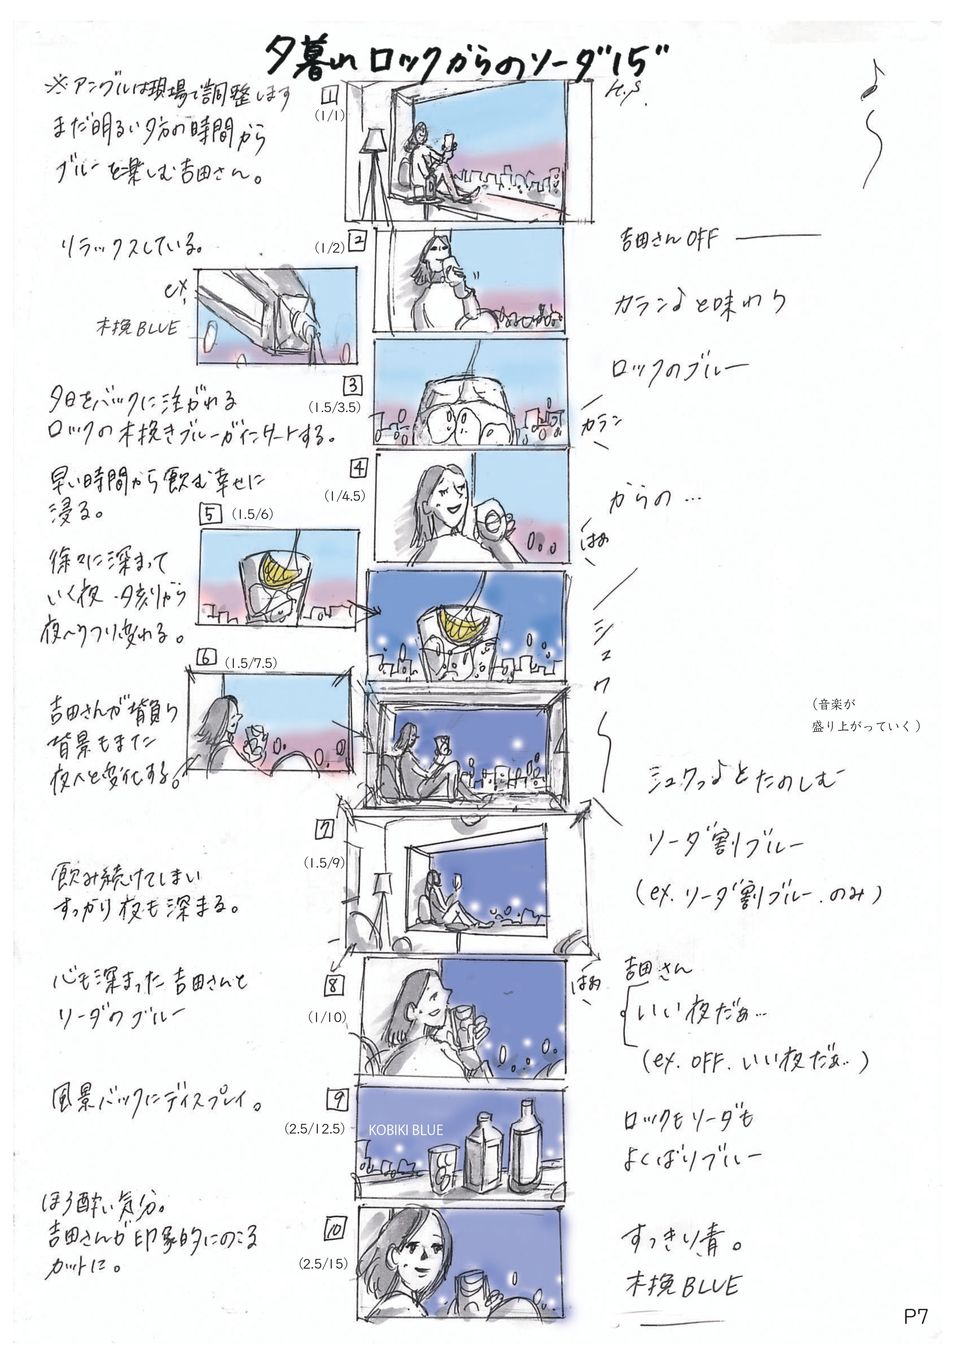 夕暮れ ロックからのソーダ"15"
※アングルは現場で調整します
まだ明るい夕方の時間から
ブルーを楽しむ吉田さん。
1
(1/1)
H.S.
リラックスしている。
(1/2)
2
吉田さん OFF
カラン♪と味わう
ex.
木挽BLUE
ロックのブルー
3
(1.5/3.5)
夕日をバックに注がれる
ロックの木挽きブルーがインサートする。
カラン
4
(1/4.5)
早い時間から飲む幸せに
浸る。
からの…
はぁ
5
(1.5/6)
徐々に深まって
いく夜、夕刻から
夜へうつり変わる。
シュワ
6
(1.5/7.5)
吉田さんが背負う
背景もまた
夜へと変化する。
(音楽が
盛り上がっていく)
シュワっ♪とたのしむ
7
(1.5/9)
ソーダ割ブルー
(ex. ソーダ割ブルー.のみ)
飲み続けてしまい
すっかり夜も深まる。
8
(1/10)
はぁ
心も深まった吉田さんと
ソーダのブルー
吉田さん
いい夜だぁ…
(ex. OFF. いい夜だぁ..)
9
(2.5/12.5)
KOBIKI BLUE
風景バックにディスプレイ。
ロックもソーダも
よくばりブルー
10
(2.5/15)
ほろ酔い気分。
吉田さんが印象的にのこる
カットに。
すっきり、青。
木挽BLUE
P7